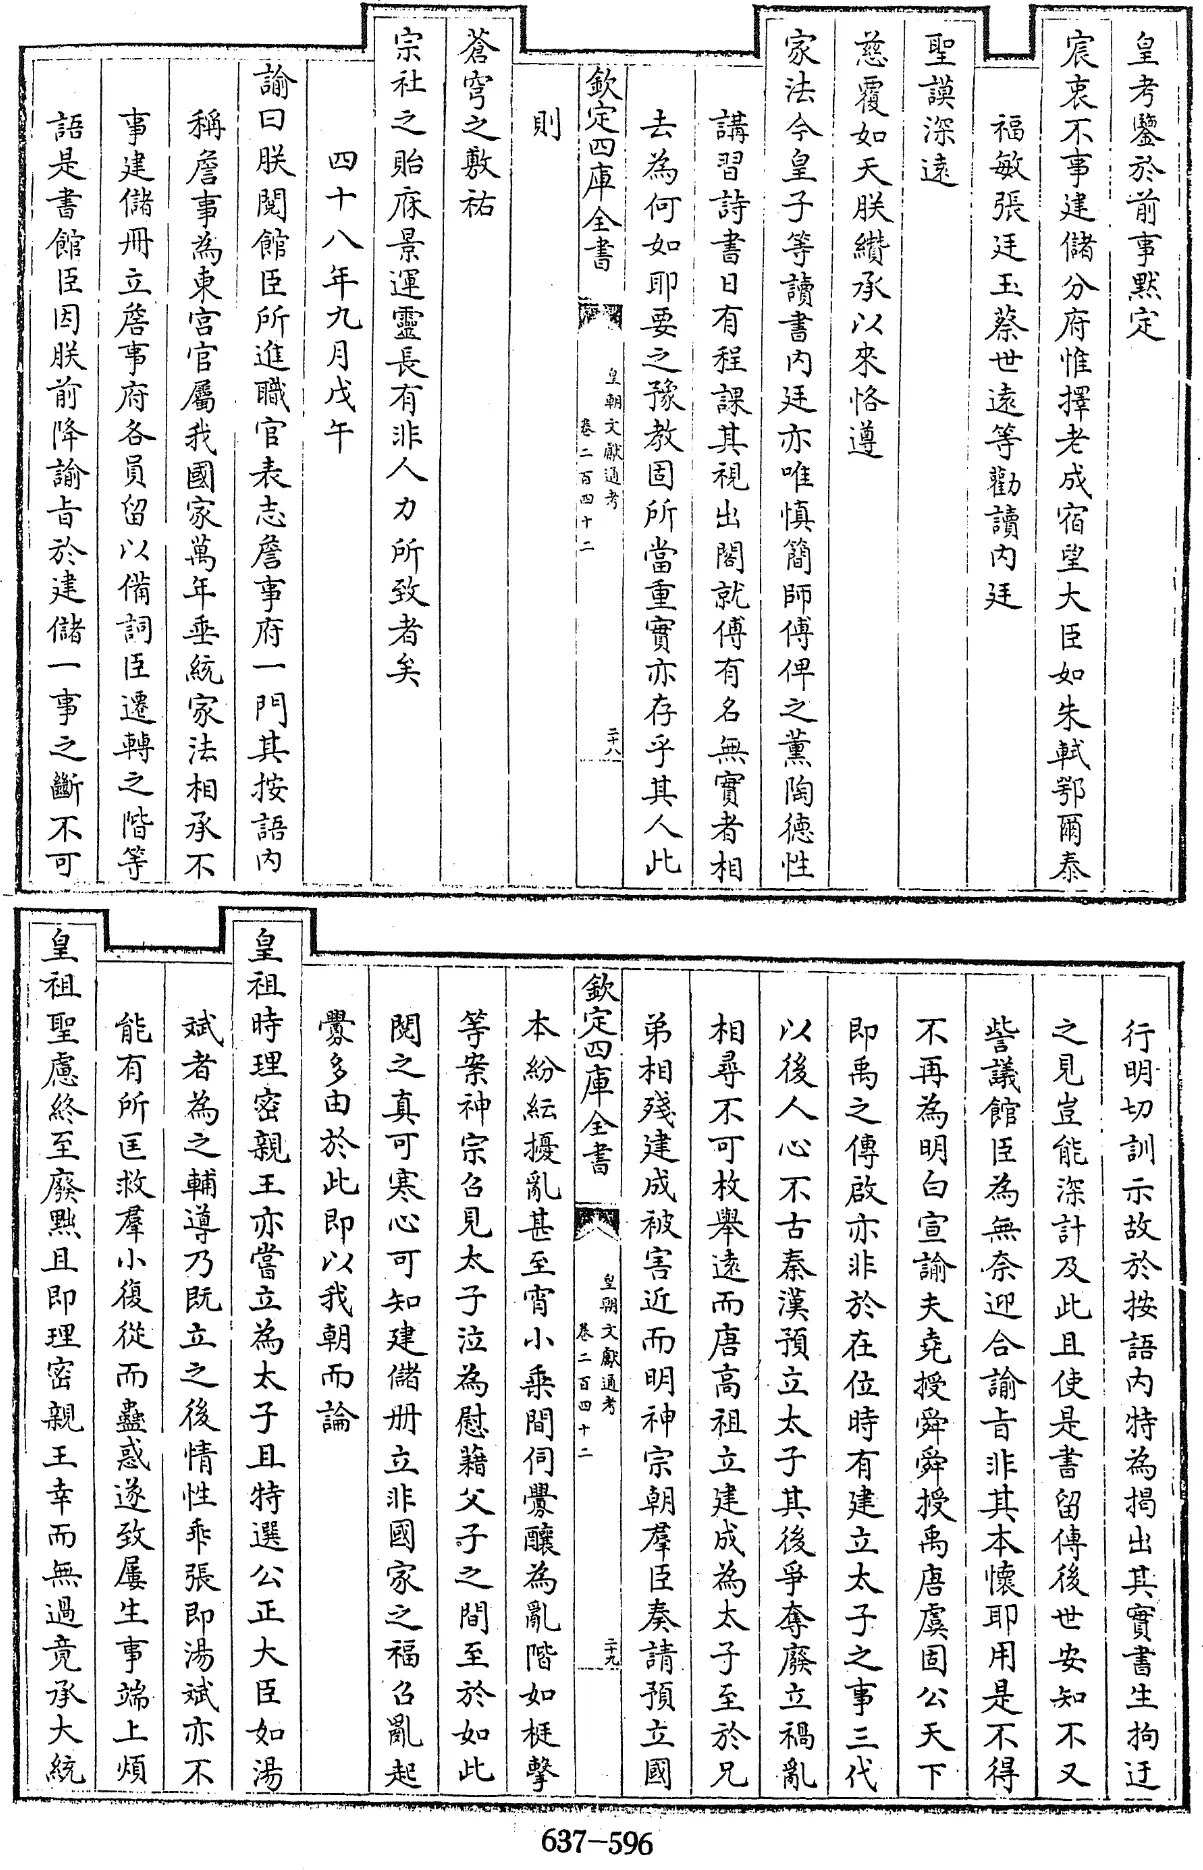 皇考鑒於前事黙定
宸衷不事建儲分府惟擇老成宿望大臣如朱軾鄂爾泰
福敏張廷玉蔡世遠等勸讀内廷
聖謨深遠
慈覆如天朕纘承以來恪遵
家法今皇子等讀書内廷亦唯慎簡師傅俾之薫陶德性
講習詩書日有程課其視出閣就傅有名無實者相
去為何如耶要之豫教固所當重實亦存乎其人此
欽定四庫全書
皇朝文獻通考
卷二百四十二
二十八
則
蒼穹之敷祐
宗社之貽庥景運靈長有非人力所致者矣
四十八年九月戊午
諭曰朕閲館臣所進職官表志詹事府一門其按語内
稱詹事為東宫官屬我國家萬年垂統家法相承不
事建儲冊立詹事府各員留以備詞臣遷轉之階等
語是書館臣因朕前降諭旨於建儲一事之斷不可
行明切訓示故於按語内特為揭出其實書生拘迂
之見豈能深計及此且使是書留傳後世安知不又
訾議館臣為無奈迎合諭旨非其本懷耶用是不得
不再為明白宣諭夫堯授舜舜授禹唐虞固公天下
即禹之傳啟亦非於在位時有建立太子之事三代
以後人心不古秦漢預立太子其後爭奪廢立禍亂
相尋不可枚舉遠而唐高祖立建成為太子至於兄
弟相殘建成被害近而明神宗朝羣臣奏請預立國
欽定四庫全書
皇朝文獻通考
卷二百四十二
二十九
本紛紜擾亂甚至宵小乘間伺釁釀為亂階如梃擊
等案神宗召見太子泣為慰藉父子之間至於如此
閲之真可寒心可知建儲冊立非國家之福召亂起
釁多由於此即以我朝而論
皇祖時理密親王亦嘗立為太子且特選公正大臣如湯
斌者為之輔導乃既立之後情性乖張即湯斌亦不
能有所匡救羣小復從而蠱惑遂致屢生事端上煩
皇祖聖慮終至廢黜且即理密親王幸而無過竟承大統
637-596